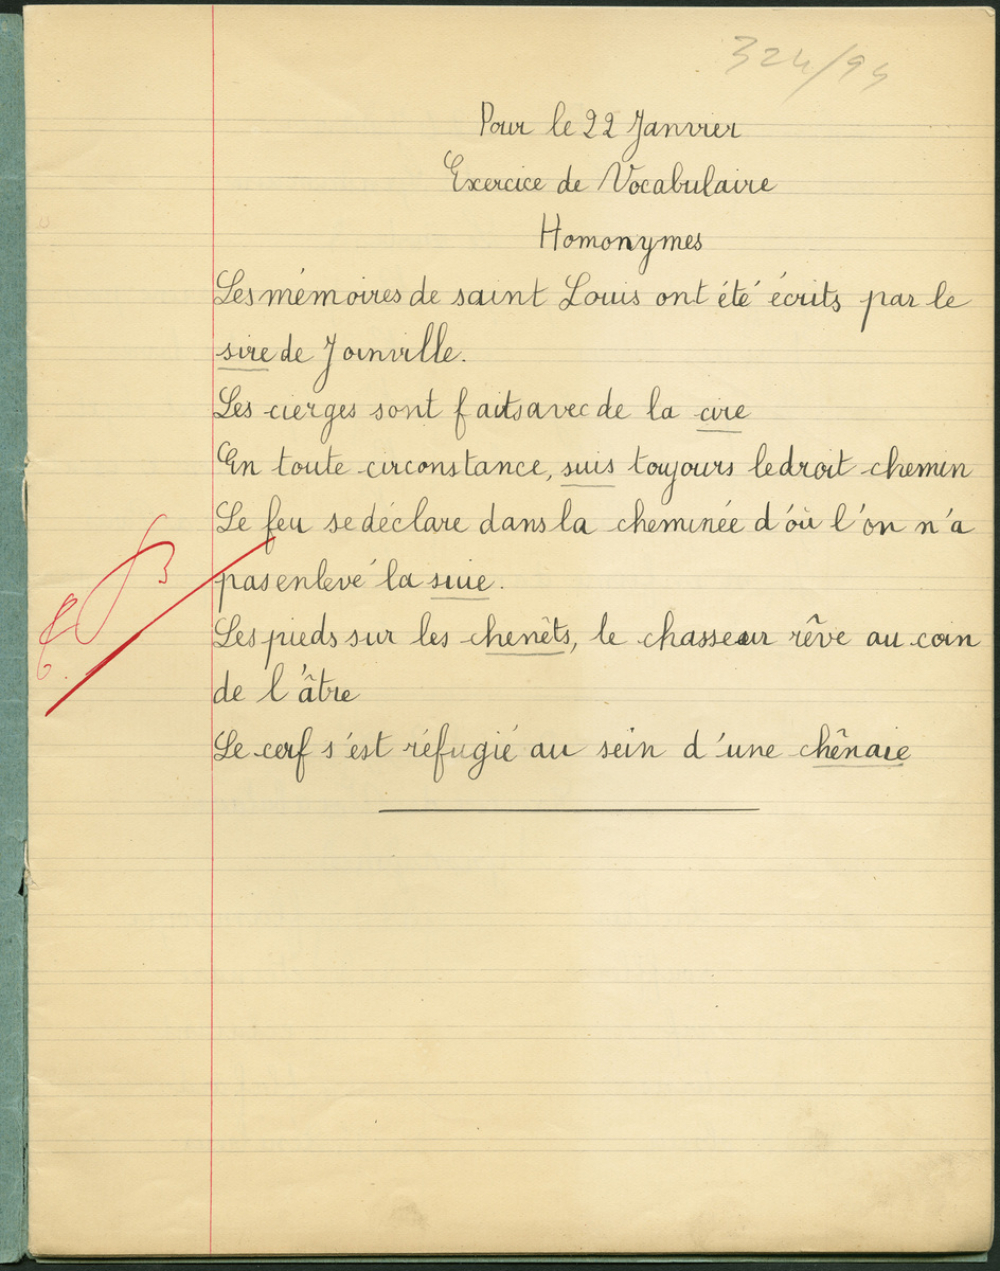 324/94
Pour le 22 Janvier
Exercice de Vocabulaire
Homonymes
Les mémoires de saint Louis ont été écrits par le
sire de Joinville.
Les cierges sont faits avec de la cire
En toute circonstance, suis toujours le droit chemin
Le feu se déclare dans la cheminée d'où l'on n'a
pas enlevé la suie.
Les pieds sur les chenêts, le chasseur rêve au coin
de l'âtre
Le cerf s'est réfugié au sein d'une chênaie